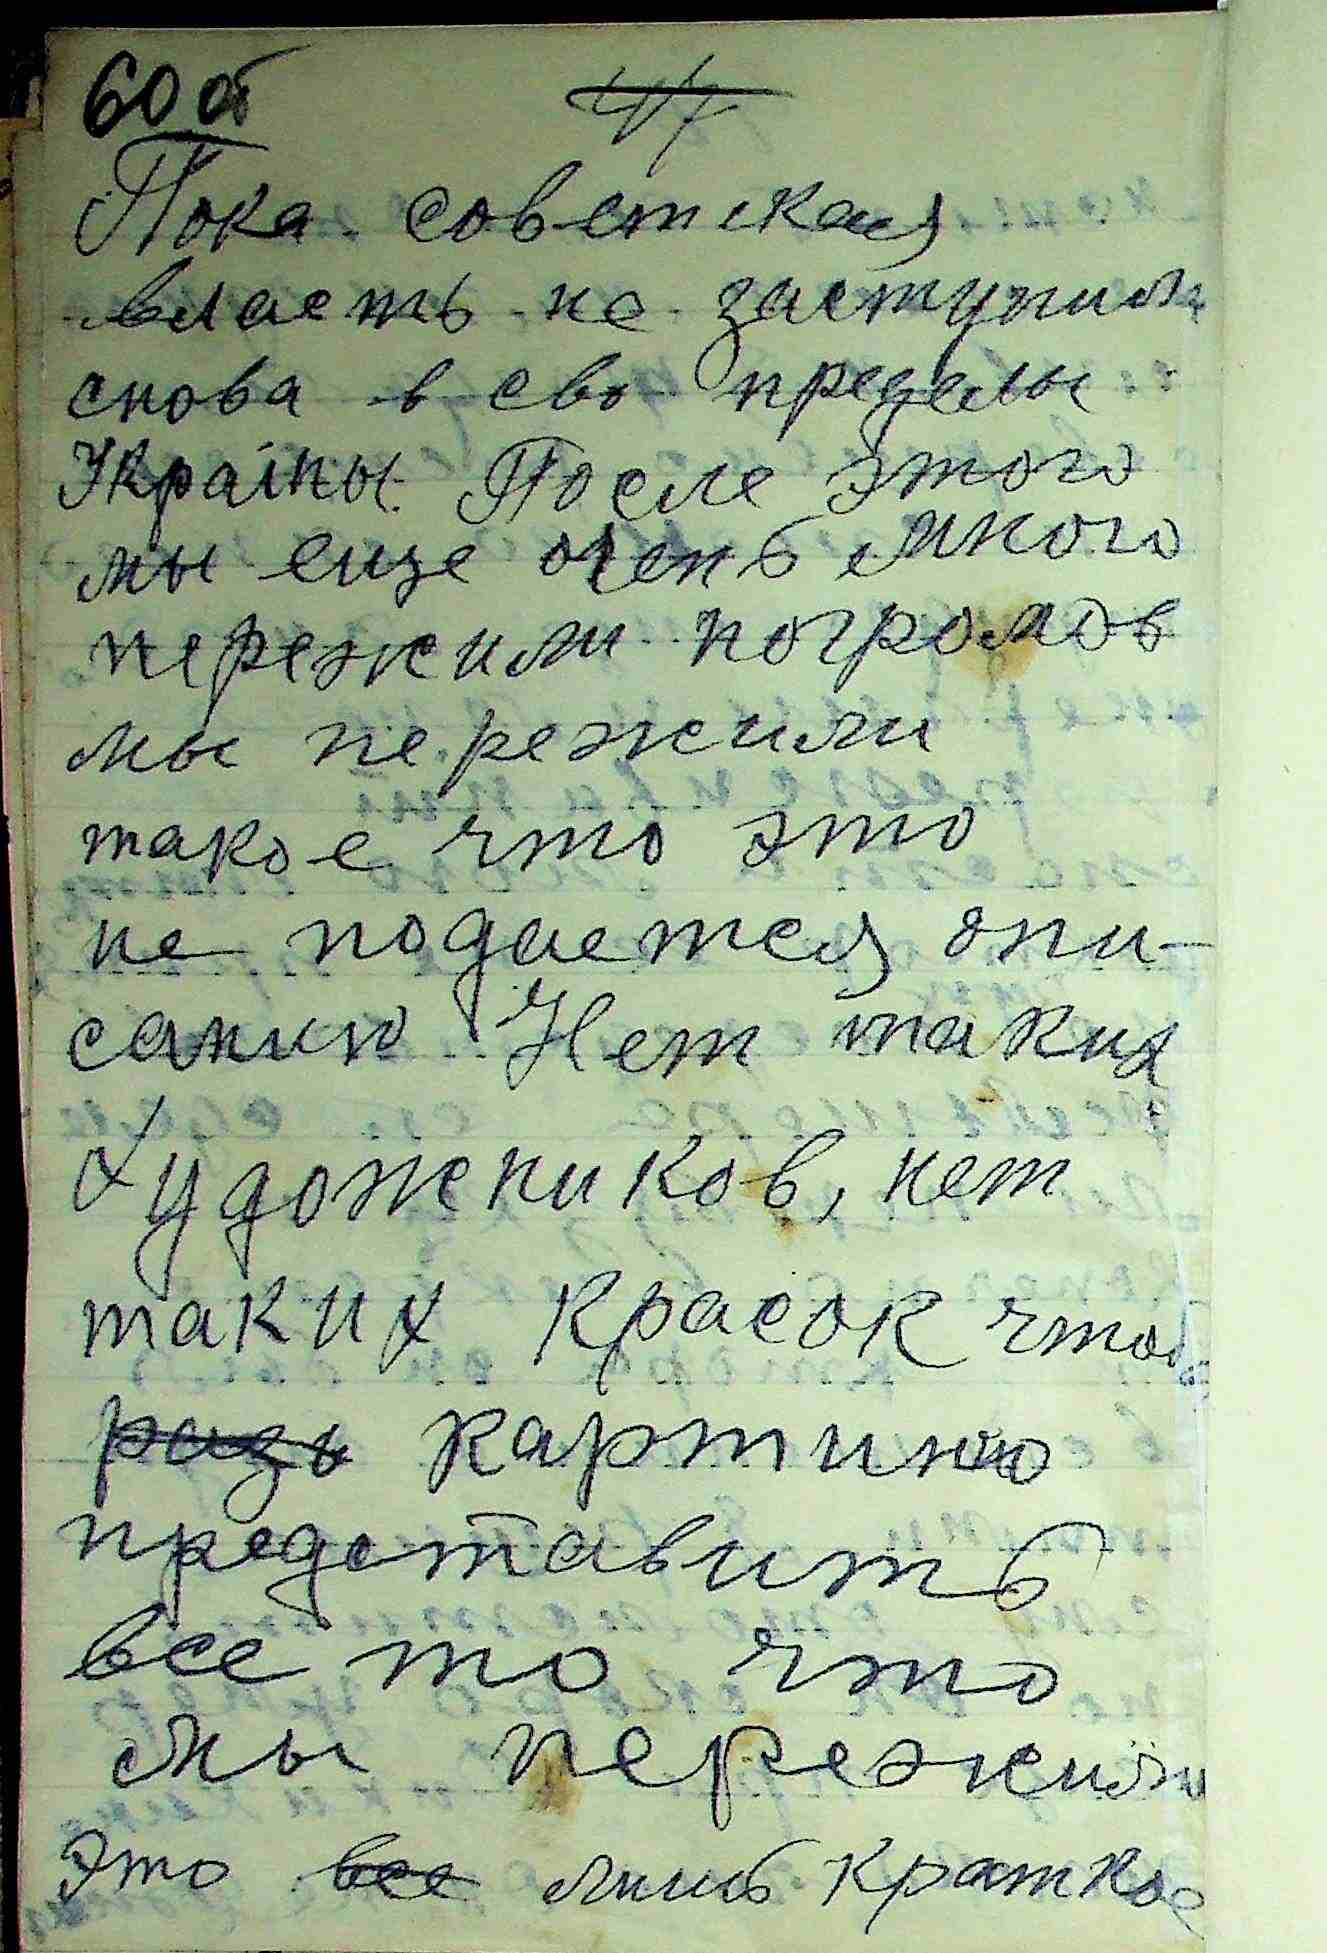 60 об
47
Пока советская
власть не заступила
снова в сво пределы
Украiны. После этого
мы еще очень много
пережили погромов
мы пережили
такое что это
не подается опи-
санию Нет таких
Художников, нет
таких красок чтоб
картиню
представить
все то что
мы пережили
Это все лишь краткое